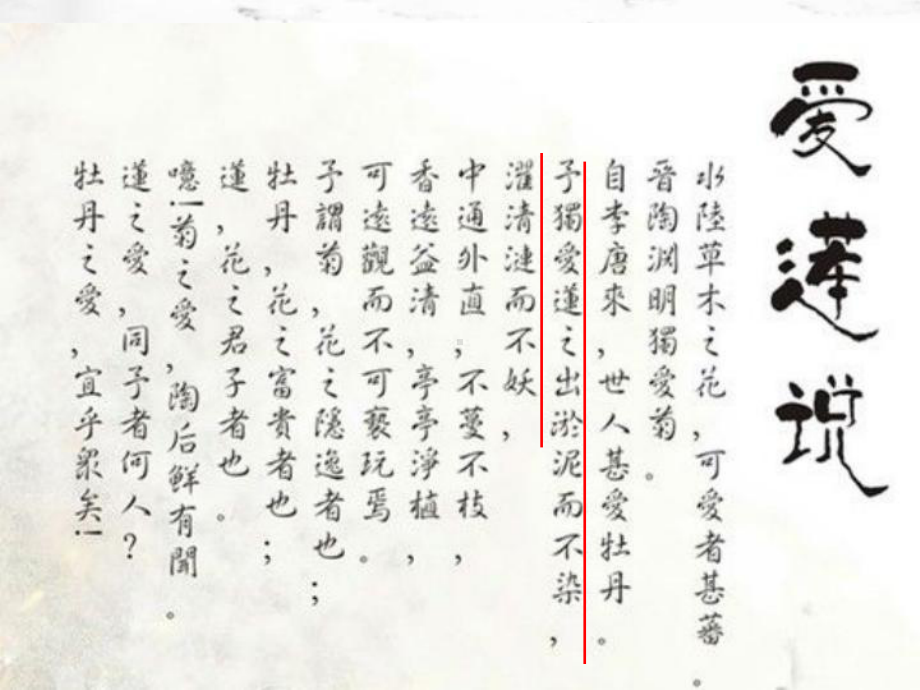 爱莲说
水陸草木之花,可愛者甚蕃。
晉陶淵明獨愛菊。
自李唐來,世人甚愛牡丹。
予獨愛蓮之出淤泥而不染,
濯清漣而不妖,
中通外直,不蔓不枝,
香遠益清,亭亭淨植,
可遠觀而不可褻玩焉。
予謂菊,花之隱逸者也;
牡丹,花之富貴者也;
蓮,花之君子者也。
噫!菊之愛,陶后鮮有聞。
蓮之愛,同予者何人?
牡丹之愛,宜乎眾矣!